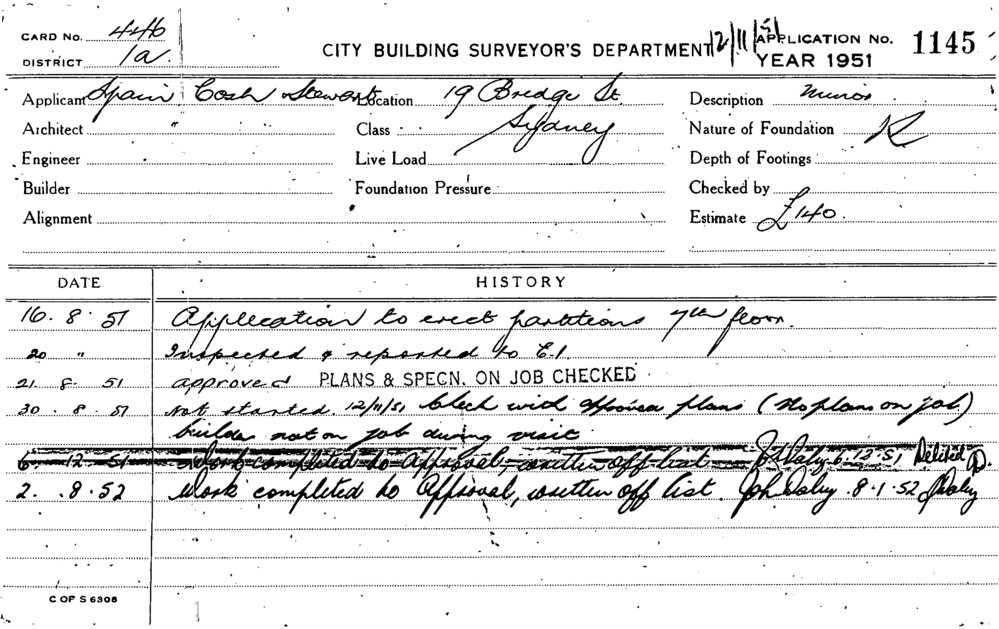 CARD No. 446
DISTRICT 1a.
CITY BUILDING SURVEYOR'S DEPARTMENT
12/11/51
APPLICATION No. 1145
YEAR 1951
Applicant Spain Cosh Stewart
Location 19 Bridge St.
Sydney
Description Minor
Architect "
Class
Nature of Foundation R
Engineer
Live Load
Depth of Footings
Builder
Foundation Pressure
Checked by
Alignment
Estimate £140.
DATE HISTORY
16.8.51 Application to erect partitions 7th floor.
20 " Inspected & reported to E.1
21.8.51 approved PLANS & SPECN. ON JOB CHECKED
30.8.51 Not started. 12/11/51 Check with approved plans (No plans on job)
builder not on job during visit
6.12.51 Work completed to Approval, written off list 6.12.51 Deleted
2.8.52 Work completed to Approval, written off list. Jn Daly 8.1.52 JDaly
C OF S 6308